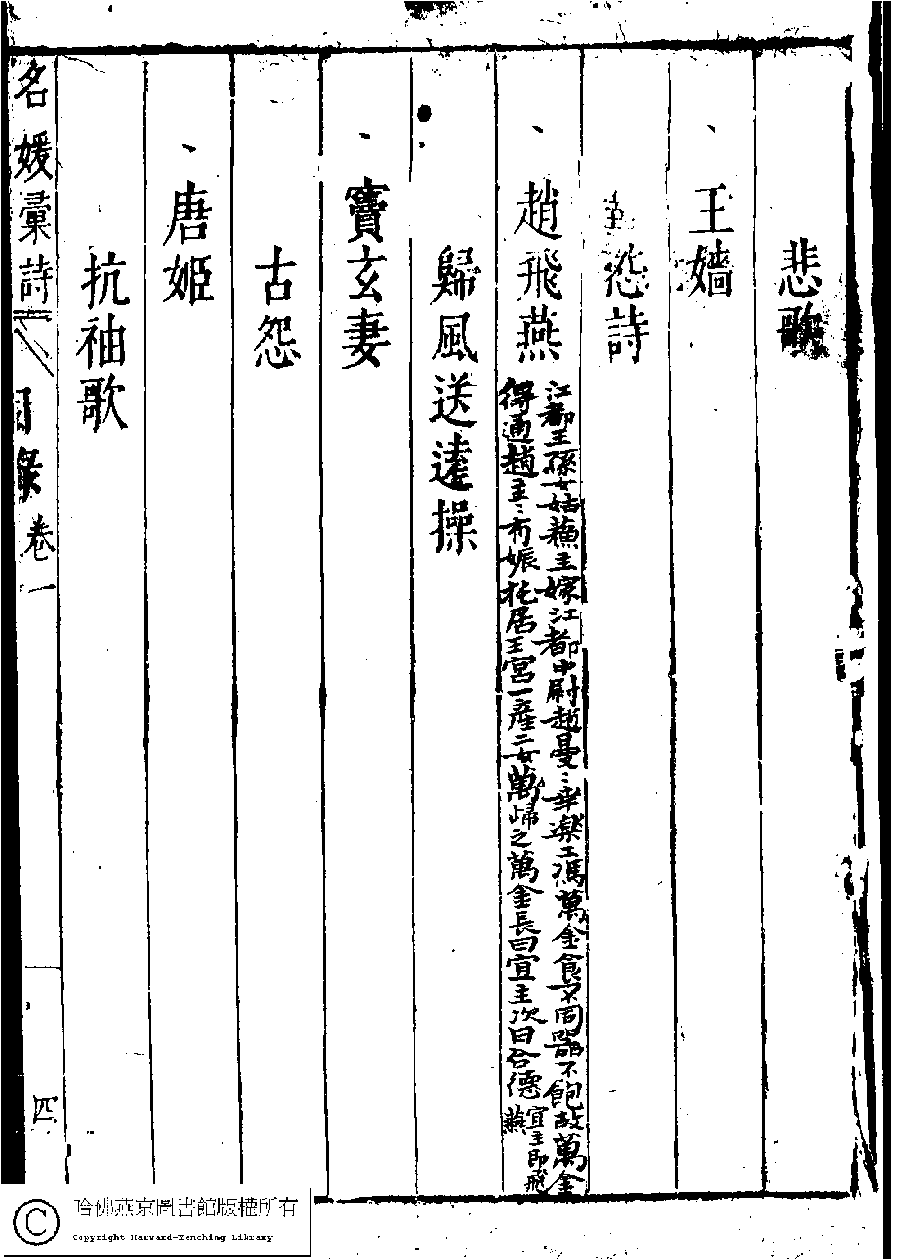 悲歌
王嬙
怨詩
趙飛燕
江都王孫女姑蘇主嫁江都中尉趙曼〻幸樂工馮萬金食不同器不飽故萬金
得通趙主〻有娠托居王宮一產二女萬歸之萬金長曰宜主次曰合德
宜主即飛
燕
歸風送遠操
竇玄妻
古怨
唐姬
抗袖歌
名媛彙詩
目錄卷一
四
哈佛燕京圖書館版權所有
Copyright Harvard-Yenching Library